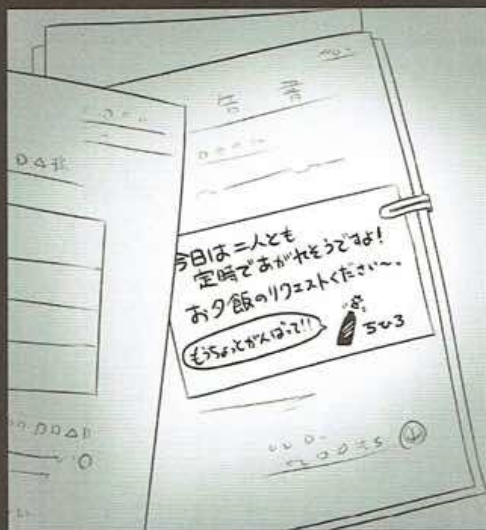 今日は二人とも
定時であがれそうですよ！
お夕飯のリクエストください〜。
もうちょっとがんばって!!
ちひろ